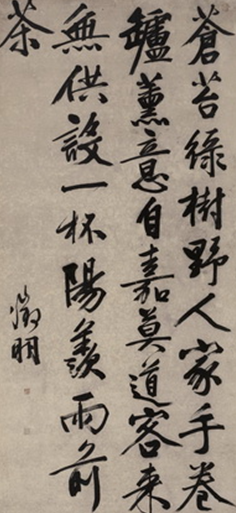 蒼苔綠樹野人家手卷
鑪薰意自嘉莫道客來
無供設一杯陽羨雨前
茶
徵明